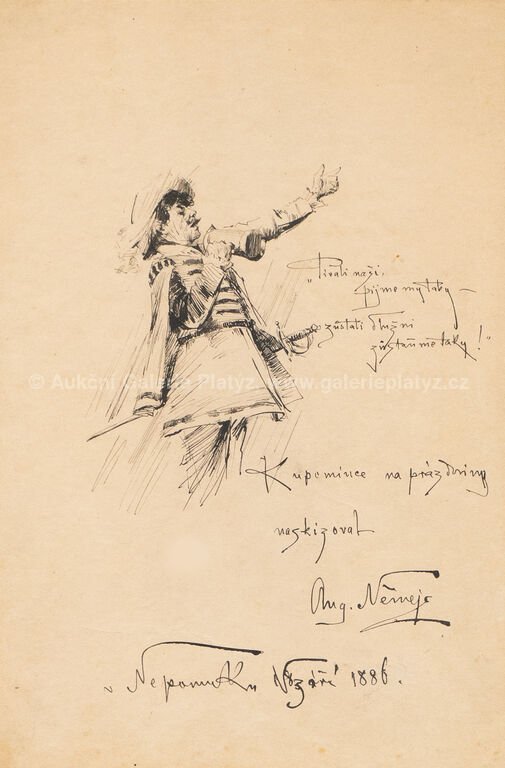 „Pívali naši,
pijme my taky —
zůstali dlužni
zůstaňme taky!"
© Aukční Galerie Platýz, www.galerieplatyz.cz
K upomínce na prázdniny
naskizoval
Aug. Němejc
v Nepomuku září 1886.